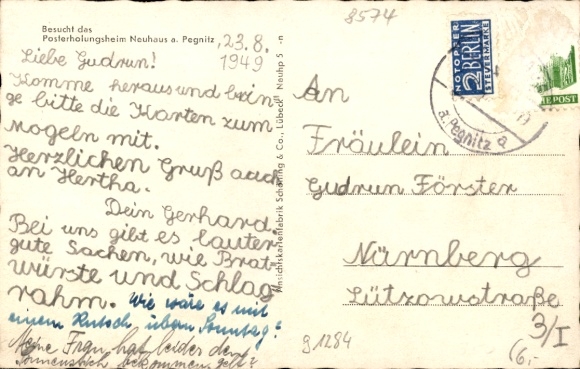 Besucht das
Posterholungsheim Neuhaus a. Pegnitz
23.8.
1949
Liebe Gudrun!
Komme heraus und brin
ge bitte die Karten zum
Mogeln mit.
Herzlichen Gruß auch
an Hertha.
Dein Gerhard.
Bei uns gibt es lauter
gute Sachen, wie Brat-
würste und Schlag
rahm. Wie wäre es mit
einem Rutsch übern Sonntag?
Meine Frau hat leider den
Sonnenstich bekommen, gell?
Ansichtskartenfabrik Schöning & Co., Lübeck
Neuhp S -n
8574
NOTOPFER
2 BERLIN
STEUERMARKE
E POST
a. Pegnitz
An
Fräulein
Gudrun Förster
Nürnberg
Lützowstraße
3/I
g 1284
(6,-